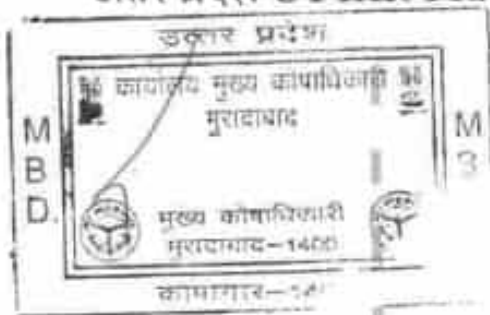 उत्तर प्रदेश
कार्यालय मुख्य कोषाधिकारी
मुरादाबाद
M
B
D.
M
मुख्य कोषाधिकारी
मुरादाबाद-1400